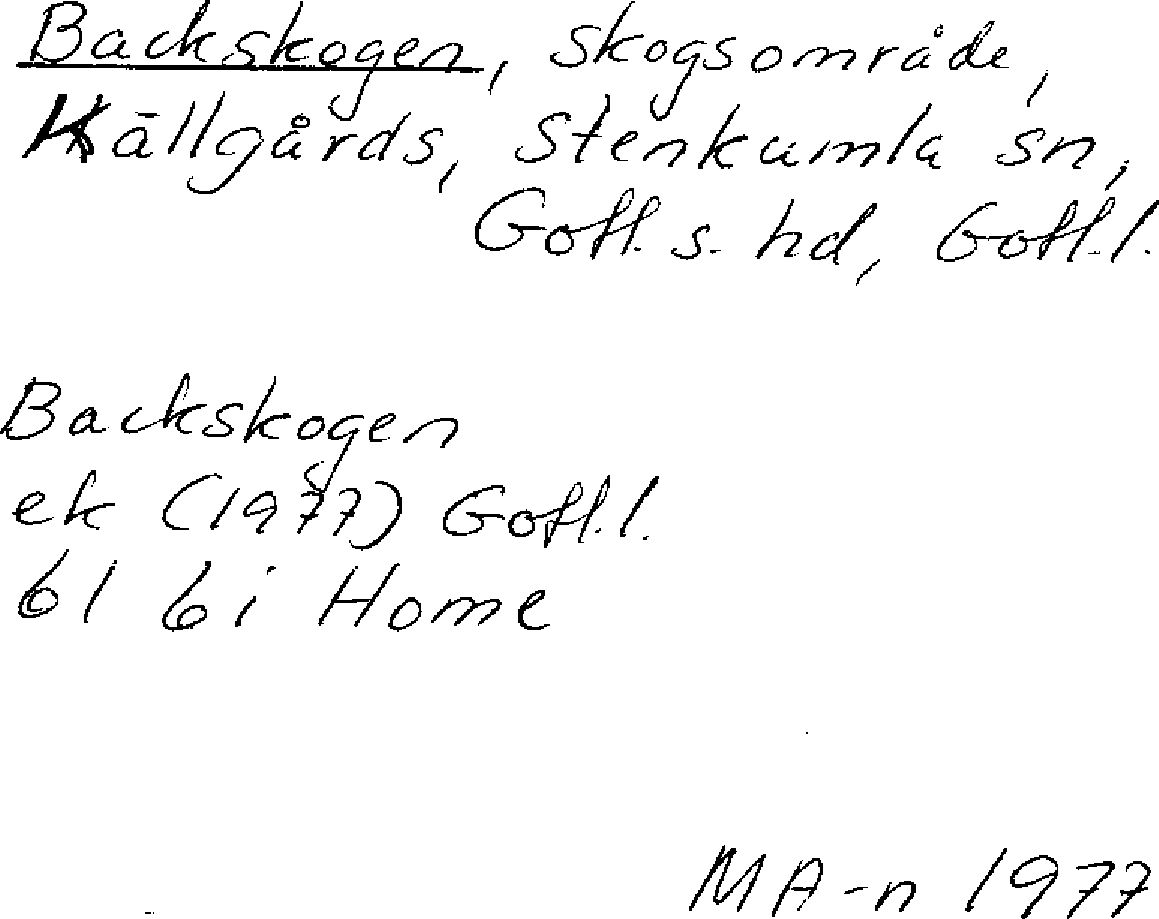 Backskogen, skogsområde,
Källgårds, Stenkumla sn,
Gotl. s. hd, Gotl. l.
Backskogen
ek (1977) Gotl. l.
6I 6i Home
MA-n 1977